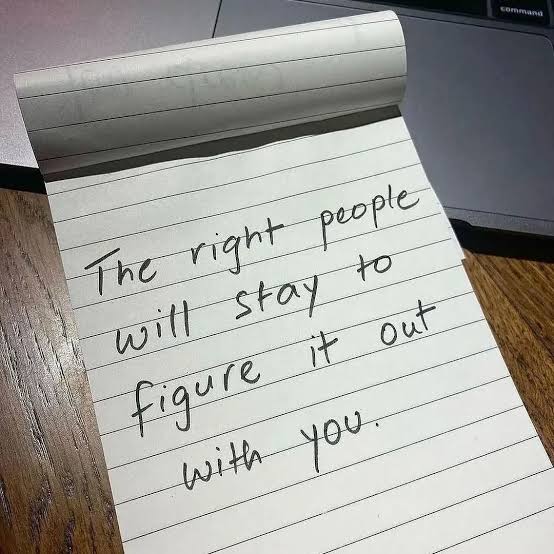 command
The right people
will stay to
figure it out
with you.